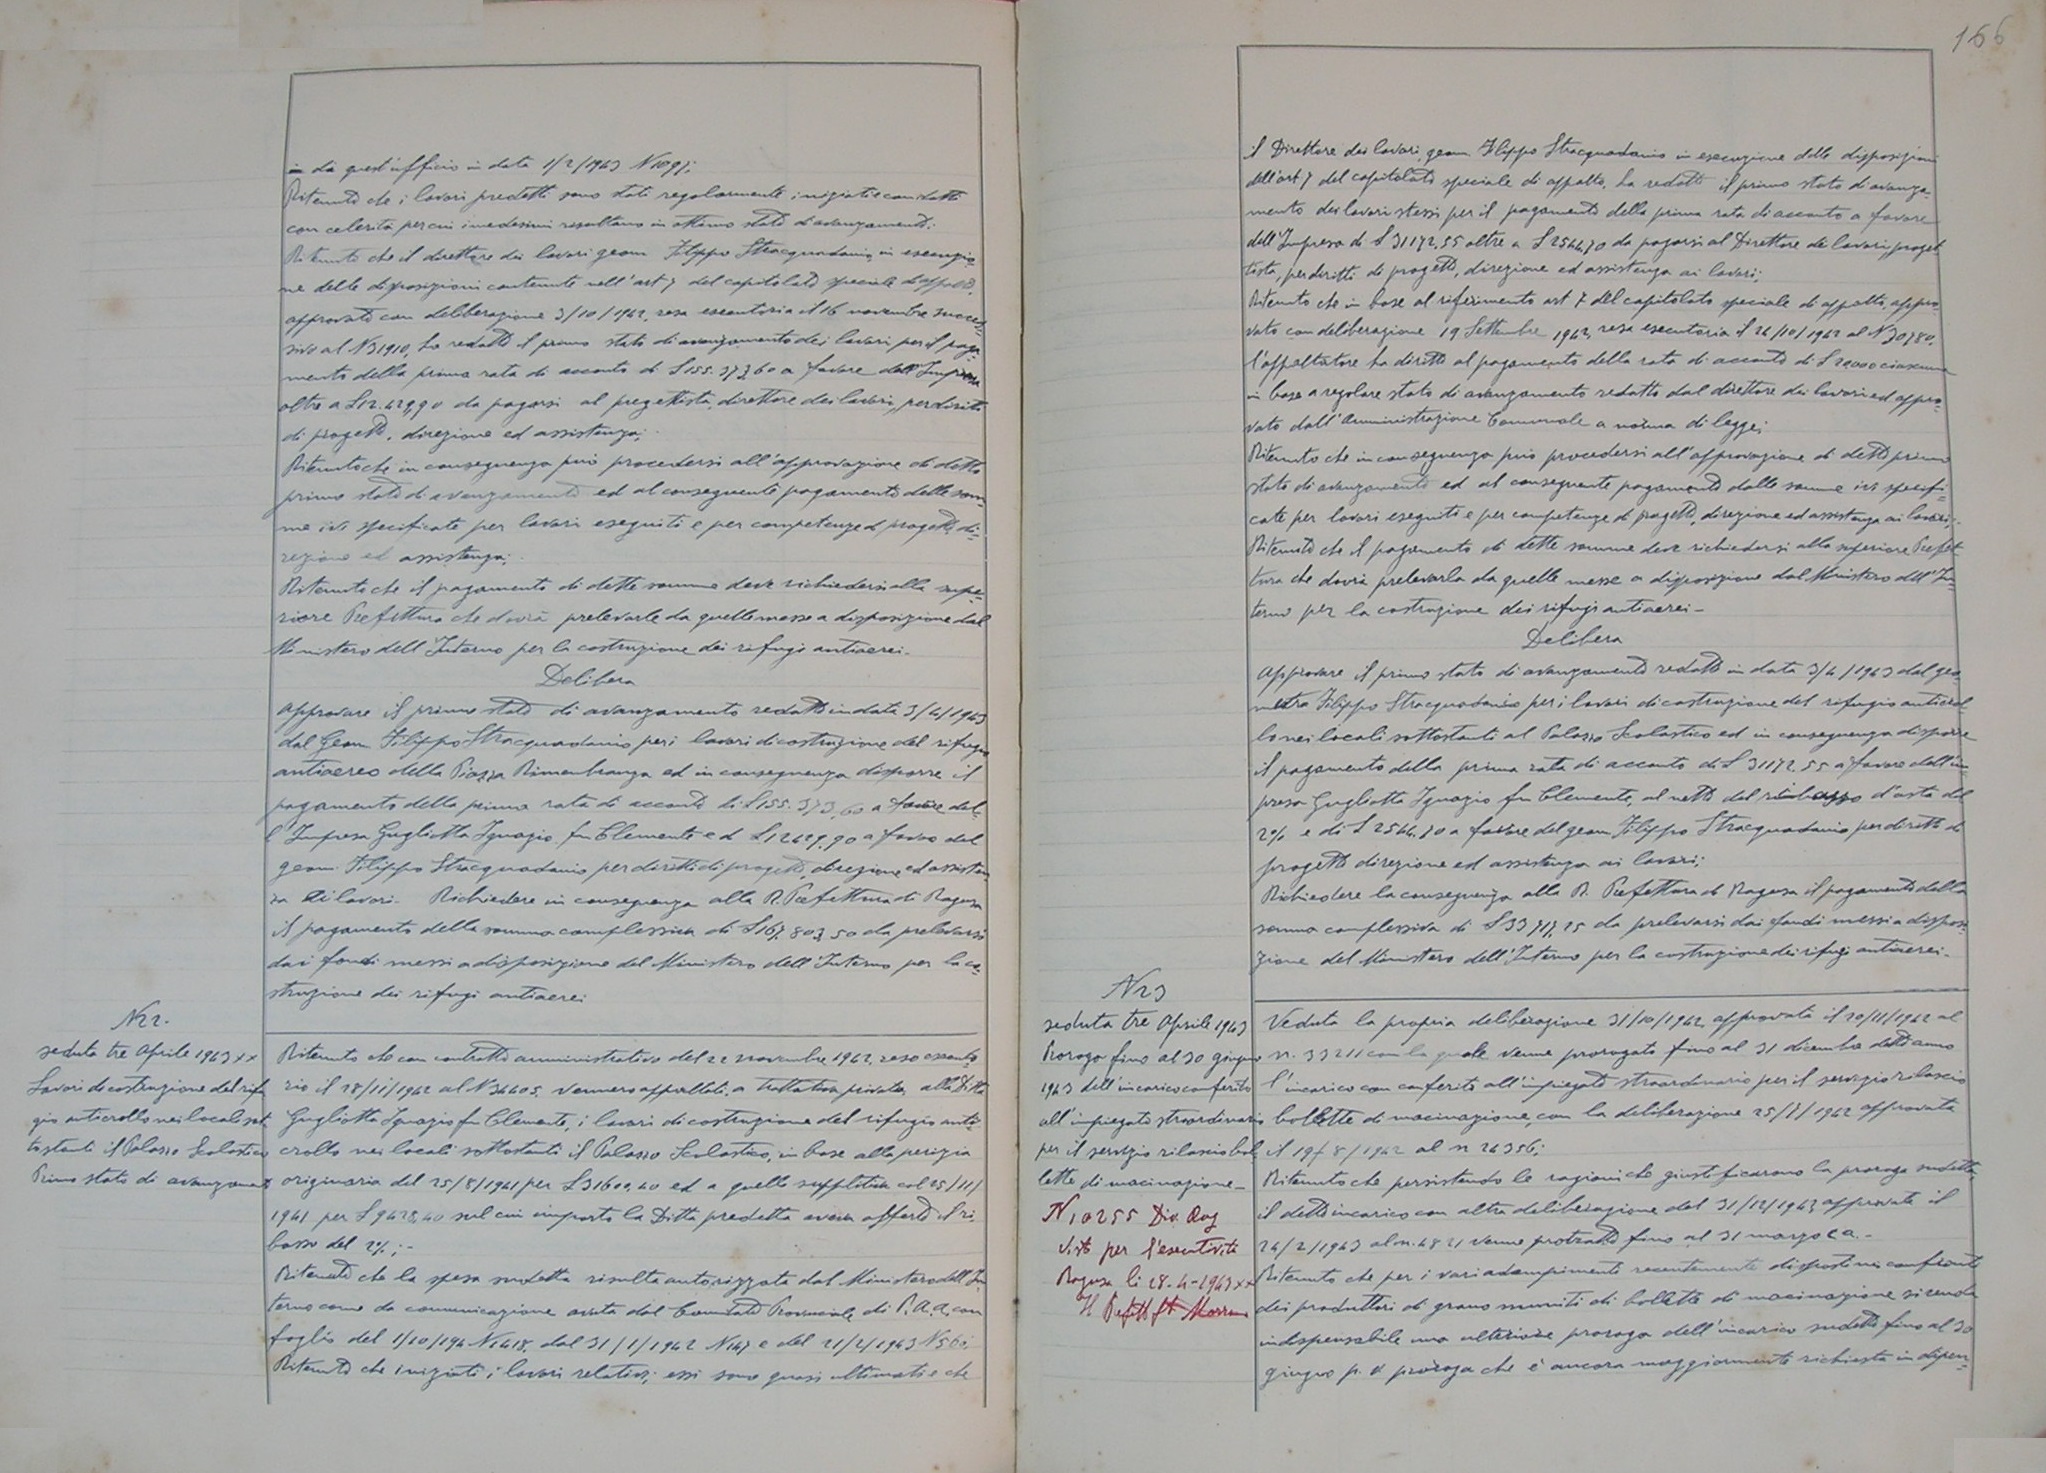 in da quest'ufficio in data 1/2/1943 N 1097;
Ritenuto che i lavori predetti sono stati regolarmente iniziati e condotti
con celerità per cui i medesimi risultano in ottimo stato di avanzamento;
Ritenuto che il direttore dei lavori geom Filippo Stracquadanio, in esecuzio-
ne delle disposizioni contenute nell'art 7 del capitolato speciale d'appalto,
approvato con deliberazione 3/10/1942 resa esecutoria il 16 novembre succes-
sivo al N 31910, ha redatto il primo stato di avanzamento dei lavori per il paga-
mento della prima rata di acconto di £ 155.373,60 a favore dell'Impresa
oltre a £ 12.429,90 da pagarsi al progettista, direttore dei lavori, per diritti
di progetto, direzione ed assistenza;
Ritenuto che in conseguenza può procedersi all'approvazione di detto
primo stato di avanzamento ed al conseguente pagamento delle som-
me ivi specificate per lavori eseguiti e per competenze di progetto, di-
rezione ed assistenza;
Ritenuto che il pagamento di dette somme deve richiedersi alla supe-
riore Prefettura che dovrà prelevarle da quelle messe a disposizione dal
Ministero dell'Interno per la costruzione dei rifugi antiaerei.
Delibera
Approvare il primo stato di avanzamento redatto in data 3/4/1943
dal Geom Filippo Stracquadanio per i lavori di costruzione del rifugio
antiaereo della Piazza Rimembranza ed in conseguenza disporre il
pagamento della prima rata di acconto di £ 155.373,60 a favore del-
l'Impresa Gugliotta Ignazio fu Clemente e di £ 12429,90 a favore del
geom. Filippo Stracquadanio per diritti di progetto, direzione ed assisten-
za ai lavori. Richiedere in conseguenza alla R. Prefettura di Ragusa
il pagamento della somma complessiva di £ 167.803,50 da prelevarsi
dai fondi messi a disposizione del Ministero dell'Interno per la co-
struzione dei rifugi antiaerei
N 22.
seduta tre Aprile 1943 XX
Lavori di costruzione del rifu
gio anticrollo nei locali sot
tostanti il Palazzo Scolastico
Primo stato di avanzamento
Ritenuto che con contratto amministrativo del 22 novembre 1942, reso esecuto-
rio il 28/11/1942 al N 34405, vennero appaltati, a trattativa privata, alla Ditta
Gugliotta Ignazio fu Clemente, i lavori di costruzione del rifugio anti-
crollo nei locali sottostanti il Palazzo Scolastico, in base alla perizia
originaria del 25/8/1941 per £ 31600,40 ed a quella suppletiva del 25/11/
1941 per £ 9428,40 sul cui importo la Ditta predetta aveva offerto il ri-
basso del 2%;-
Ritenuto che la spesa suddetta risulta autorizzata dal Ministero dell'In-
terno come da comunicazione avuta dal Comitato Provinciale di P.A.A. con
foglio del 1/10/194 N 1418, dal 31/1/1942 N 147 e del 21/2/1943 N 560;
Ritenuto che iniziati i lavori relativi, essi sono quasi ultimati e che
166
il Direttore dei lavori, geom Filippo Stracquadanio in esecuzione delle disposizioni
dell'art 7 del capitolato speciale di appalto, ha redatto il primo stato di avanza-
mento dei lavori stessi per il pagamento della prima rata di acconto a favore
dell'Impresa di £ 31172,55 oltre a £ 2544,70 da pagarsi al Direttore dei lavori, proget-
tista, per diritti di progetto, direzione ed assistenza ai lavori;
Ritenuto che in base al riferimento art 7 del capitolato speciale di appalto, appro-
vato con deliberazione 19 Settembre 1942, resa esecutoria il 24/10/1942 al N 30780,
l'appaltatore ha diritto al pagamento della rata di acconto di £ 20000 ciascuna
in base a regolare stato di avanzamento redatto dal direttore dei lavori ed appro-
vato dall'Amministrazione Comunale a norma di legge;
Ritenuto che in conseguenza può procedersi all'approvazione di detto primo
stato di avanzamento ed al conseguente pagamento delle somme ivi specifi-
cate per lavori eseguiti e per competenze di progetto, direzione ed assistenza ai lavori;-
Ritenuto che il pagamento di dette somme deve richiedersi alla superiore Prefet-
tura che dovrà prelevarla da quelle messe a disposizione dal Ministero dell'In-
terno per la costruzione dei rifugi antiaerei-
Delibera
Approvare il primo stato di avanzamento redatto in data 3/4/1943 dal geo-
metra Filippo Stracquadanio per i lavori di costruzione del rifugio anticrol-
lo nei locali sottostanti al Palazzo Scolastico ed in conseguenza disporre
il pagamento della prima rata di acconto di £ 31172,55 a favore dell'im-
presa Gugliotta Ignazio fu Clemente, al netto del ribasso d'asta del
2% e di £ 2544,70 a favore del geom Filippo Stracquadanio per diritti di
progetto direzione ed assistenza ai lavori;
Richiedere la conseguenza alla R. Prefettura di Ragusa il pagamento della
somma complessiva di £ 33717,25 da prelevarsi dai fondi messi a disposi-
zione del Ministero dell'Interno per la costruzione dei rifugi antiaerei-
N 23
seduta tre Aprile 1943
Proroga fino al 30 giugno
1943 dell'incarico conferito
all'impiegato straordinario
per il servizio rilascio bol
lette di macinazione-
N 10255 Div Rag
Visto per l'esecutività
Ragusa li 28-4-1943 XX
Il Prefetto
Veduta la propria deliberazione 31/10/1942, approvata il 20/11/1942 al
n. 33211 con la quale venne prorogato fino al 31 dicembre detto anno
l'incarico con conferito all'impiegato straordinario per il servizio rilascio
bollette di macinazione, con la deliberazione 25/7/1942 approvata
il 19/8/1942 al n 24356;
Ritenuto che persistendo le ragioni che giustificarono la proroga suddetta,
il detto incarico con altra deliberazione del 31/12/1942, approvata il
24/2/1943 al n. 4821 venne protratto fino al 31 marzo c.a.-
Ritenuto che per i vari adempimenti recentemente disposti nei confronti
dei produttori di grano muniti di bollette di macinazione si rende
indispensabile una ulteriore proroga dell'incarico suddetto fino al 30
giugno p. v. proroga che è ancora maggiormente richiesta in dipen-